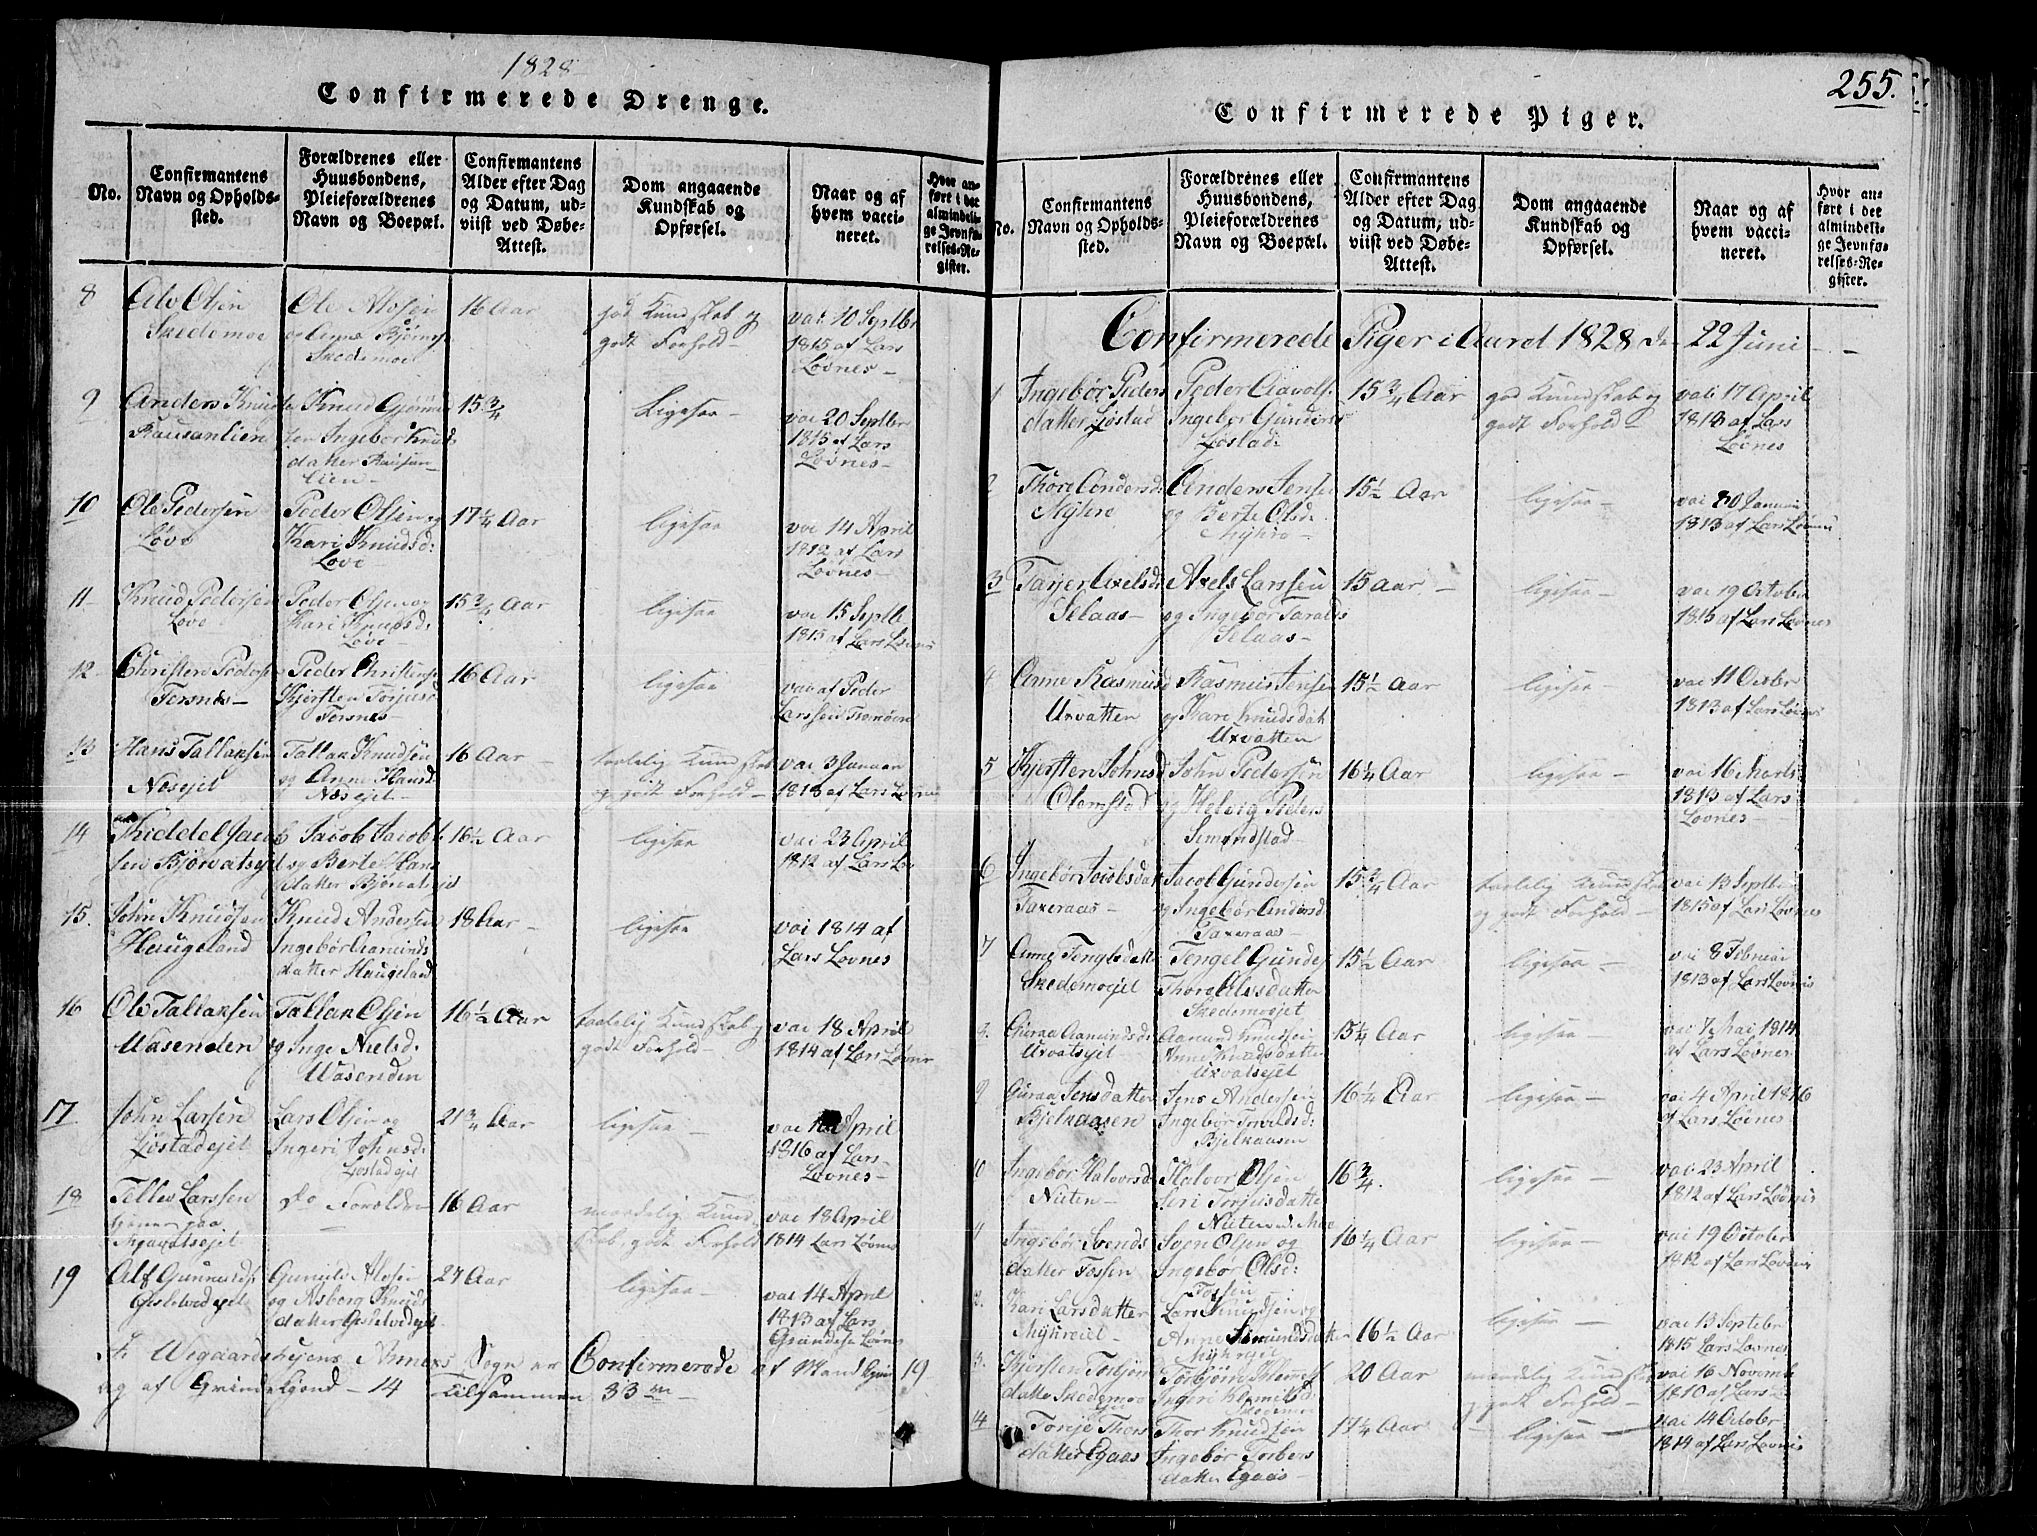 1828
Confirmerede Drenge.
No.
Confirmantens
Navn og Opholds-
sted.
Forældrenes eller
Huusbondens,
Pleieforældrenes
Navn og Boepæl.
Confirmantens
Alder efter Dag
og Datum, ud-
viist ved Døbe-
Attest.
Dom angaaende
Kundskab og
Opførsel.
Naar og af
hvem vacci-
neret.
Hvor an-
ført i det
almindeli-
ge Jevnfø-
relses-Re-
gister.
8
Alv Olsen
Skedemoe
Ole Alvsen
og Anne Biørns
Skedemoe
16 Aar
god Kundskab og
godt Forhold-
vac 10 Septbr
1815 af Lars
Løvnes-
9
Anders Knuds
Rausanlien
Knud
sen Ingebor Knud
datter Rausan-
lien-
15 3/4
Ligesaa-
vac 20 Septbr
1815 af Lars
Løvnes-
10
Ole Pedersen
Løve
Peder Olsen og
Kari Knudsd:
Løve
17 1/4 Aar
ligesaa
vac 14 April
1812 af Lars
Løvnes-
11
Knud Pedersen
Løve
Peder Olsen og
Kari Knudsd:
Løve
15 3/4 Aar
ligesaa
vac 15 Septb
1813 af Lars Løvnes
12
Christen Peders
Fersnes-
Peder Christens
Kjersten Torjusd
Fersnes-
16 Aar
ligesaa
vac af Peder
Larssen Tromøen
13
Hans Tallaksen
Næsejet
Tallak Knudsen
og Anne Hansd
Næsejet-
16 Aar
taalelig Kundskab
og godt Forhold-
vac 3 Januar
1813 af Lars Løvnes
14
Kiddel Jacob
sen Bjørvatsejet
Jacob Jacobs
og Berte Hans
datter Bjørvatsejet
16 1/2 Aar
ligesaa
vac 23 April
1812 af Lars Løv
15.
John Knudsen
Haugeland
Knud Andersen
Ingebør Aamunds
datter Haugeland
18 Aar-
ligesaa
vac 1814 af
Lars Løvnes
16
Ole Tallaksen
Wasenden
Tallak Olsen
og Inge Nielsd:
Wasenden
16 1/2 Aar
taalelig Kundskab og
godt Forhold-
vac 18 April
1814 af Lars Løvnes
17
John Larsen
Ljøstadejet
Lars Olsen og
Ingeri Johnsd:
Ljøstadejet
21 3/4 Aar
ligesaa-
April
1816 af Lars-
Løvnes-
18
Tellev Larssen
Do Forældre
16 Aar
maadelig Kund-
skab, godt Forhold
vac 18 April
1814 Lars Løvnes
19
Alf Gunnulds
Gunnuls Alvsen
og Asborg Knuds
datter
27 Aar
ligesaa
vac 14 April
1813 af Lars
Løvnes
I Wegaardsheiens Annexs Sogn er Confirmerede af Mandkjøn 19
og af Qvindekjønd- 14 Tilsammen 33-
255.
Confirmerede Piger.
No.
Confirmantens
Navn og Opholds-
sted.
Forældrenes eller
Huusbondens,
Pleieforældrenes
Navn og Boepæl.
Confirmantens
Alder efter Dag
og Datum, ud-
viist ved Døbe-
Attest.
Dom angaaende
Kundskab og
Opførsel.
Naar og af
hvem vacci-
neret.
Hvor an-
ført i det
almindeli-
ge Jevnfø-
relses-Re-
gister.
Confirmerede Piger i Aaret 1828 den 22 Juni-
1
Ingebør Peders
datter Ljøstad
Peder Aavolfs
Ingebor Gunders
Ljøstad:
15 3/4 Aar
god Kundskab og
godt Forhold-
vac 17 April
1813 af Lars
Løvnes
2
Thore Andersd:
Myhre
Anders Jensen
og Berte Olsd:
Myhre-
15 1/2 Aar
ligesaa-
vac 30 Januar
1813 af Lars Løvnes
3
Tarjer Axelsd:
Selaas-
Axels Larssen
og Ingebør Taralds
Selaas-
15 Aar-
ligesaa-
vac 19 October
1815 af Lars Løvnes
4
Anne Rasmusd
Uxvatten
Rasmus Jensen
og Kari Knudsdat
Uxvatten
15 1/2 Aar
ligesaa-
vac 11 Octbr
1813 af Lars Løvnes
5
Kjersten Johnsd
Olemstad
John Pedersen
og Helvig Peders
Simonstad
16 1/4 Aar
ligesaa-
vac 16 Marts
1813 af Lars
Løvnes-
6
Ingebør Jacobsdatt
Taxeraas-
Jacob Gundersen
og Ingebør Andersd
Taxeraas-
15 3/4 Aar
taalelig Kundskab
og godt Forhold-
vac 13 Septbr
1815 af Lars Løvnes
7
Anne Tengelsdatt
Skedemoejet
Tengel Gunders
Thore Alvsdatter
Skedemoejet
15 1/2 Aar
ligesaa-
vac 8 Februar
1813 af Lars Løvnes
8.
Guraa Aamundsd:
Uxvatsejet
Aamund Knudsen
Anne Knudsdatter
Uxvatsejet
15 1/4 Aar
ligesaa-
vac 7 Mai 1814
af Lars Løvnes
9
Guraa Jensdatter
Bjelkaasen
Jens Andersen
Ingebør
Bjelkaasen
16 1/4 Aar
ligesaa-
vac 4 April 1816
af Lars Løvnes
10
Ingebør Halvorsd
Nieten-
Halvor Olsen
Siri Torjusdatter
Nieten
16 3/4.
ligesaa-
vac 23 April
1812 af Lars Løvnes
11
Ingebør Svends
datter Fossen
Sven Olsen og
Ingebør Olsd:
Fossen
16 1/4 Aar
ligesaa-
vac 19 October
1812 af Lars Løvnes
12.
Kari Larsdatter
Myhreiet-
Lars Knudsen og
Anne Simundsdatter
Myhreiet
16 1/2 Aar
ligesaa-
vac 13 Septebr
1815 Lars Løvnes
13.
Kjersten Torbjøn
datter Skedemoe
Torbjøn Klemmets
Ingeri Klemitsd:
Skedemoe
20 Aar
maadelig Kundskab
og godt Forhold-
vac 16 Novemb
1810 af Lars-
Løvnes
14
Torije Thors
datter Egaas
Thor Knudsen
Ingebør Torbens
datter Egaas-
17 1/4 Aar
ligesaa-
vac 14 Octobr
1814 af Lars Løvnes